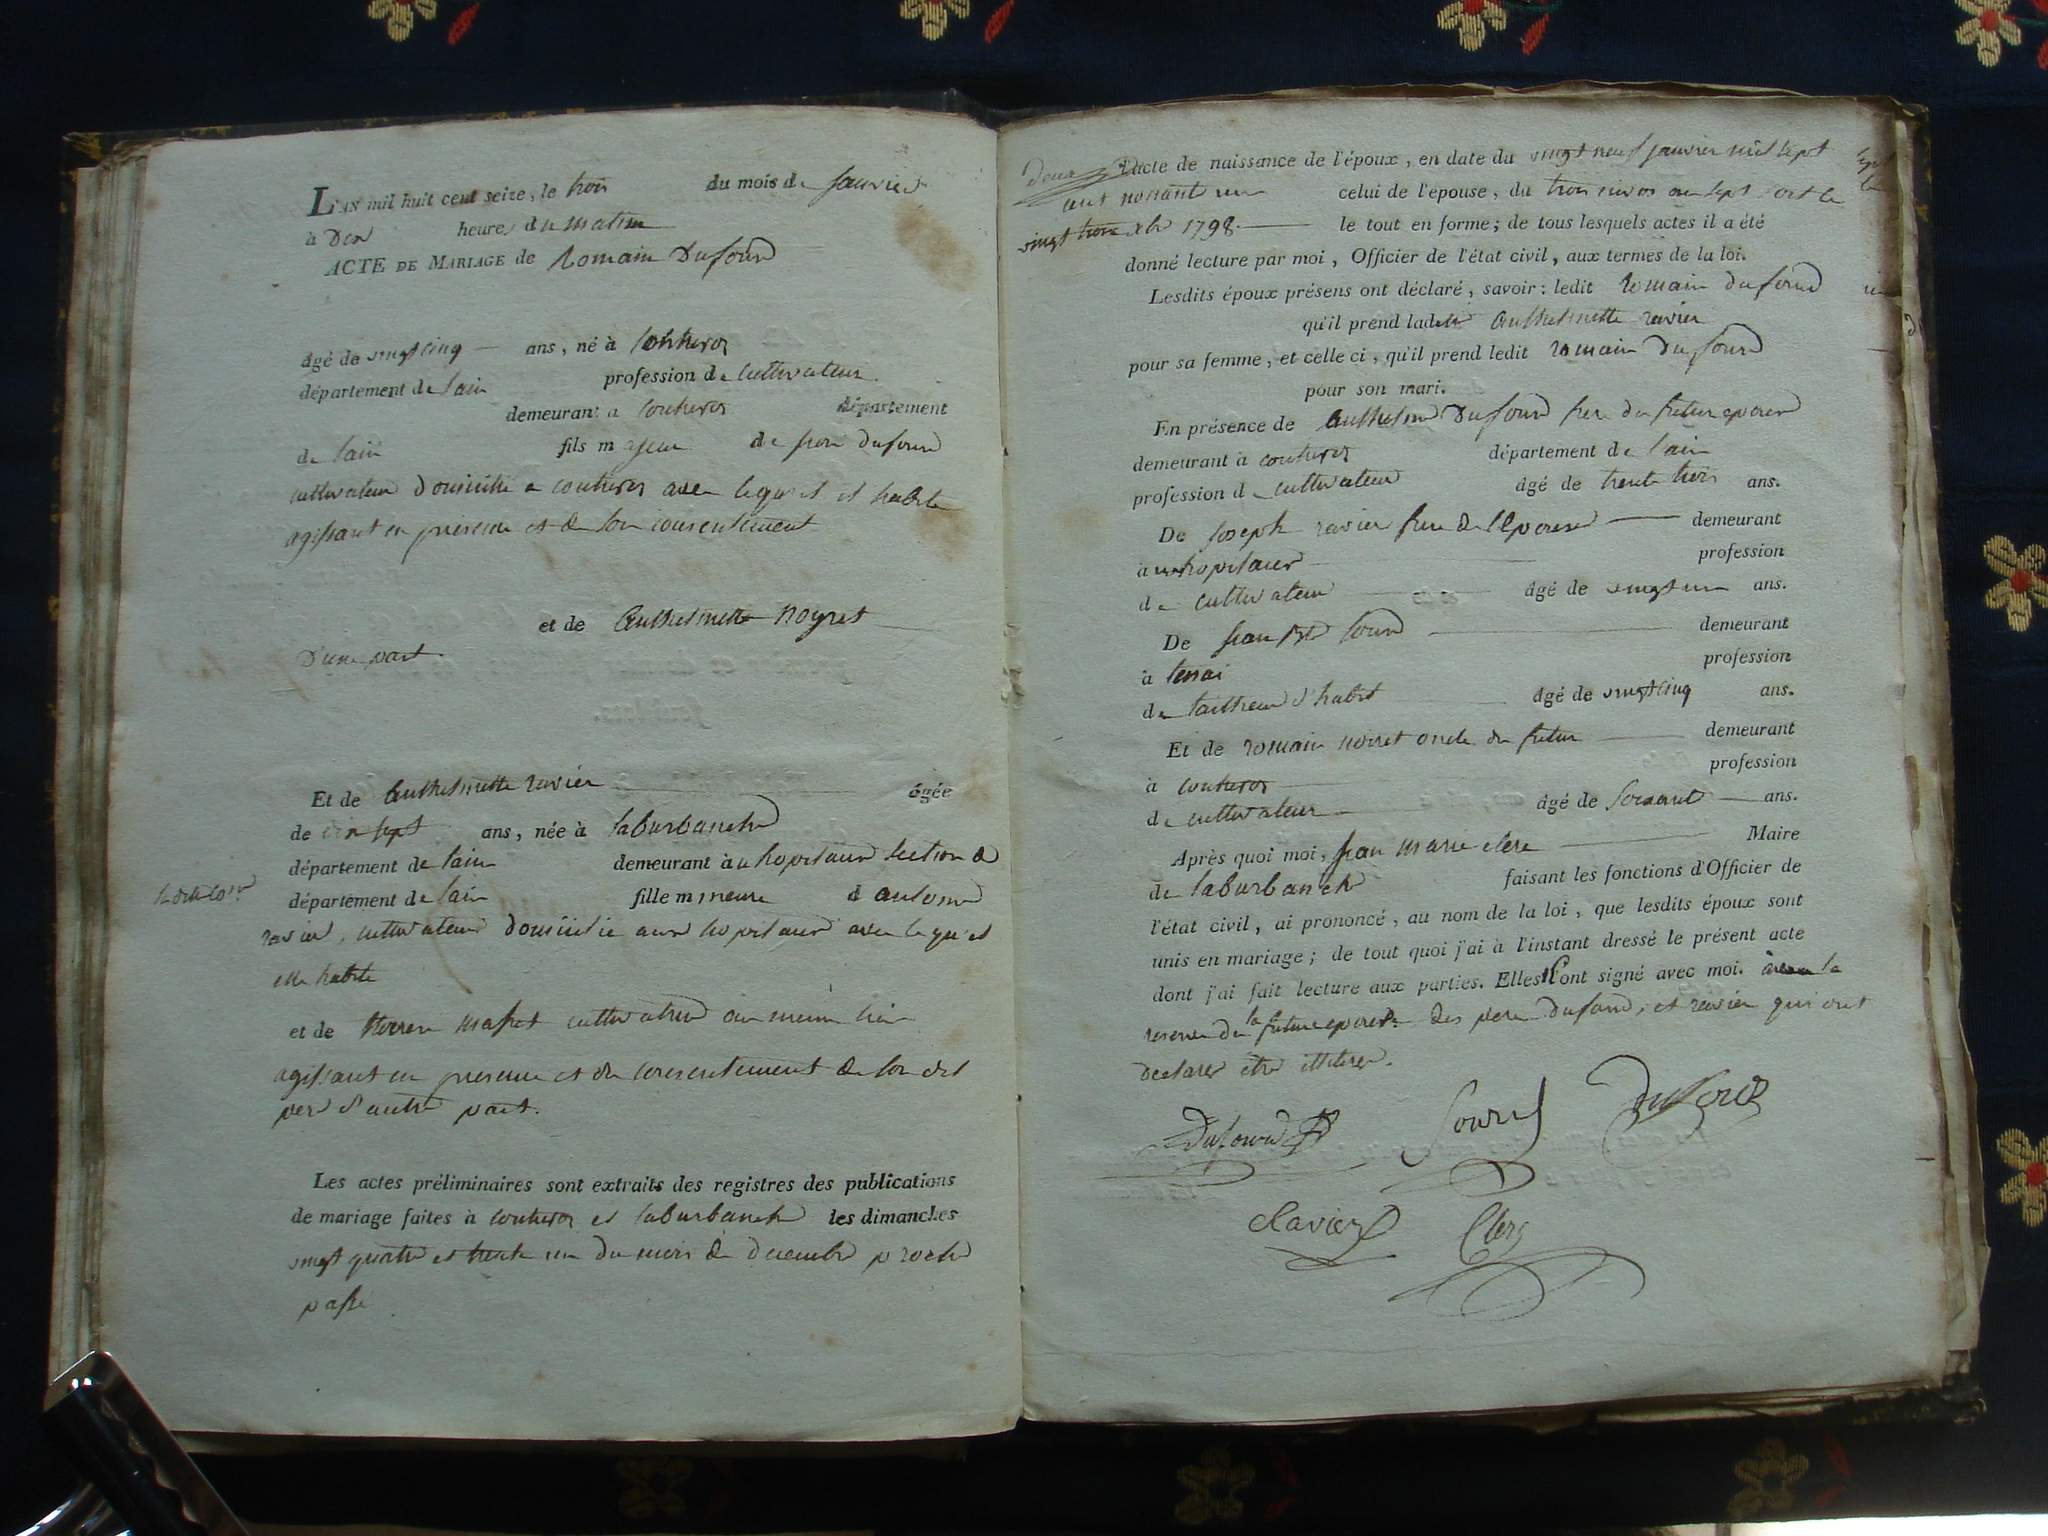 L'AN mil huit cent seize, le trois du mois de janvier
à dix heures du matin
ACTE DE MARIAGE de Romain Dufourd
âgé de vingt cinq ans, né à contrevoz
département de lain profession de cultivateur
demeurant a contrevoz département
de lain fils majeur de jean dufourd
cultivateur domicilié a contrevoz avec lequel il habite
agissant en presence et de son consentement
et de Anthelmette Noyret
D'une part.
Et de anthelmette ravier âgée
de dix sept ans, née à laburbanche
département de lain demeurant à hopitaux section de
ladite
département de lain fille mineure d antoine
ravier, cultivateur domicilié aux hopitaux avec lequel
elle habite
et de cultivateur au meme lieu
agissant en presence et du consentement de son dit
pere d'autre part.
Les actes préliminaires sont extraits des registres des publications
de mariage faites à contrevoz et laburbanche les dimanches
vingt quatre et trente un du mois de decembre proche
passé
L'acte de naissance de l'époux, en date du vingt neuf janvier mil sept
cent nonant un celui de l'épouse, du trois nivos an sept
vingt trois xbre 1798. le tout en forme; de tous lesquels actes il a été
donné lecture par moi, Officier de l'état civil, aux termes de la loi.
Lesdits époux présens ont déclaré, savoir: ledit romain dufourd
qu'il prend ladite anthelmette ravier
pour sa femme, et celle ci, qu'il prend ledit romain Dufourd
pour son mari.
En présence de anthelme Dufourd frere du futur epoux
demeurant à contrevoz département de lain
profession de cultivateur âgé de trente trois ans.
De joseph ravier frere de l'Epouse demeurant
a hopitaux profession
de cultivateur âgé de vingt un ans.
De jean demeurant
à tenai profession
de tailleur d'habit âgé de vingt cinq ans.
Et de romain noiret oncle du futur demeurant
à contrevoz profession
de cultivateur âgé de soixante ans.
Après quoi moi, jean marie clerc Maire
de laburbanche faisant les fonctions d'Officier de
l'état civil, ai prononcé, au nom de la loi, que lesdits époux sont
unis en mariage; de tout quoi j'ai à l'instant dressé le présent acte
dont j'ai fait lecture aux parties. Elles ont signé avec moi. a la
reserve de la future epouse des pere Dufourd, et ravier qui ont
declarer etre illiterer.
Dufourd Dufourd
Clerc